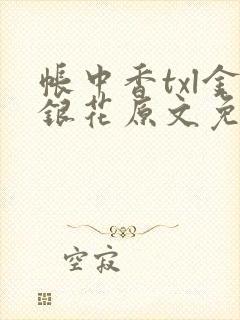 帐中香txl金
银花原文免
空寂